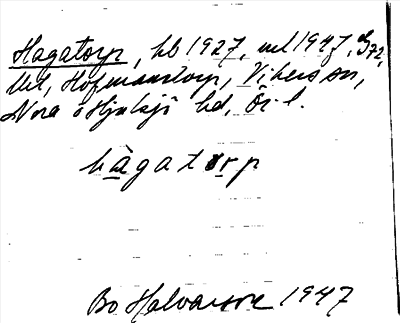 Hagatorp, hb 1927, uel 1947, 372,
lht, Hofmanstorp, Vikers sn,
Nora o Hjulsjö hd, Ör l.
hàgatorp
Bo Halvarson 1947